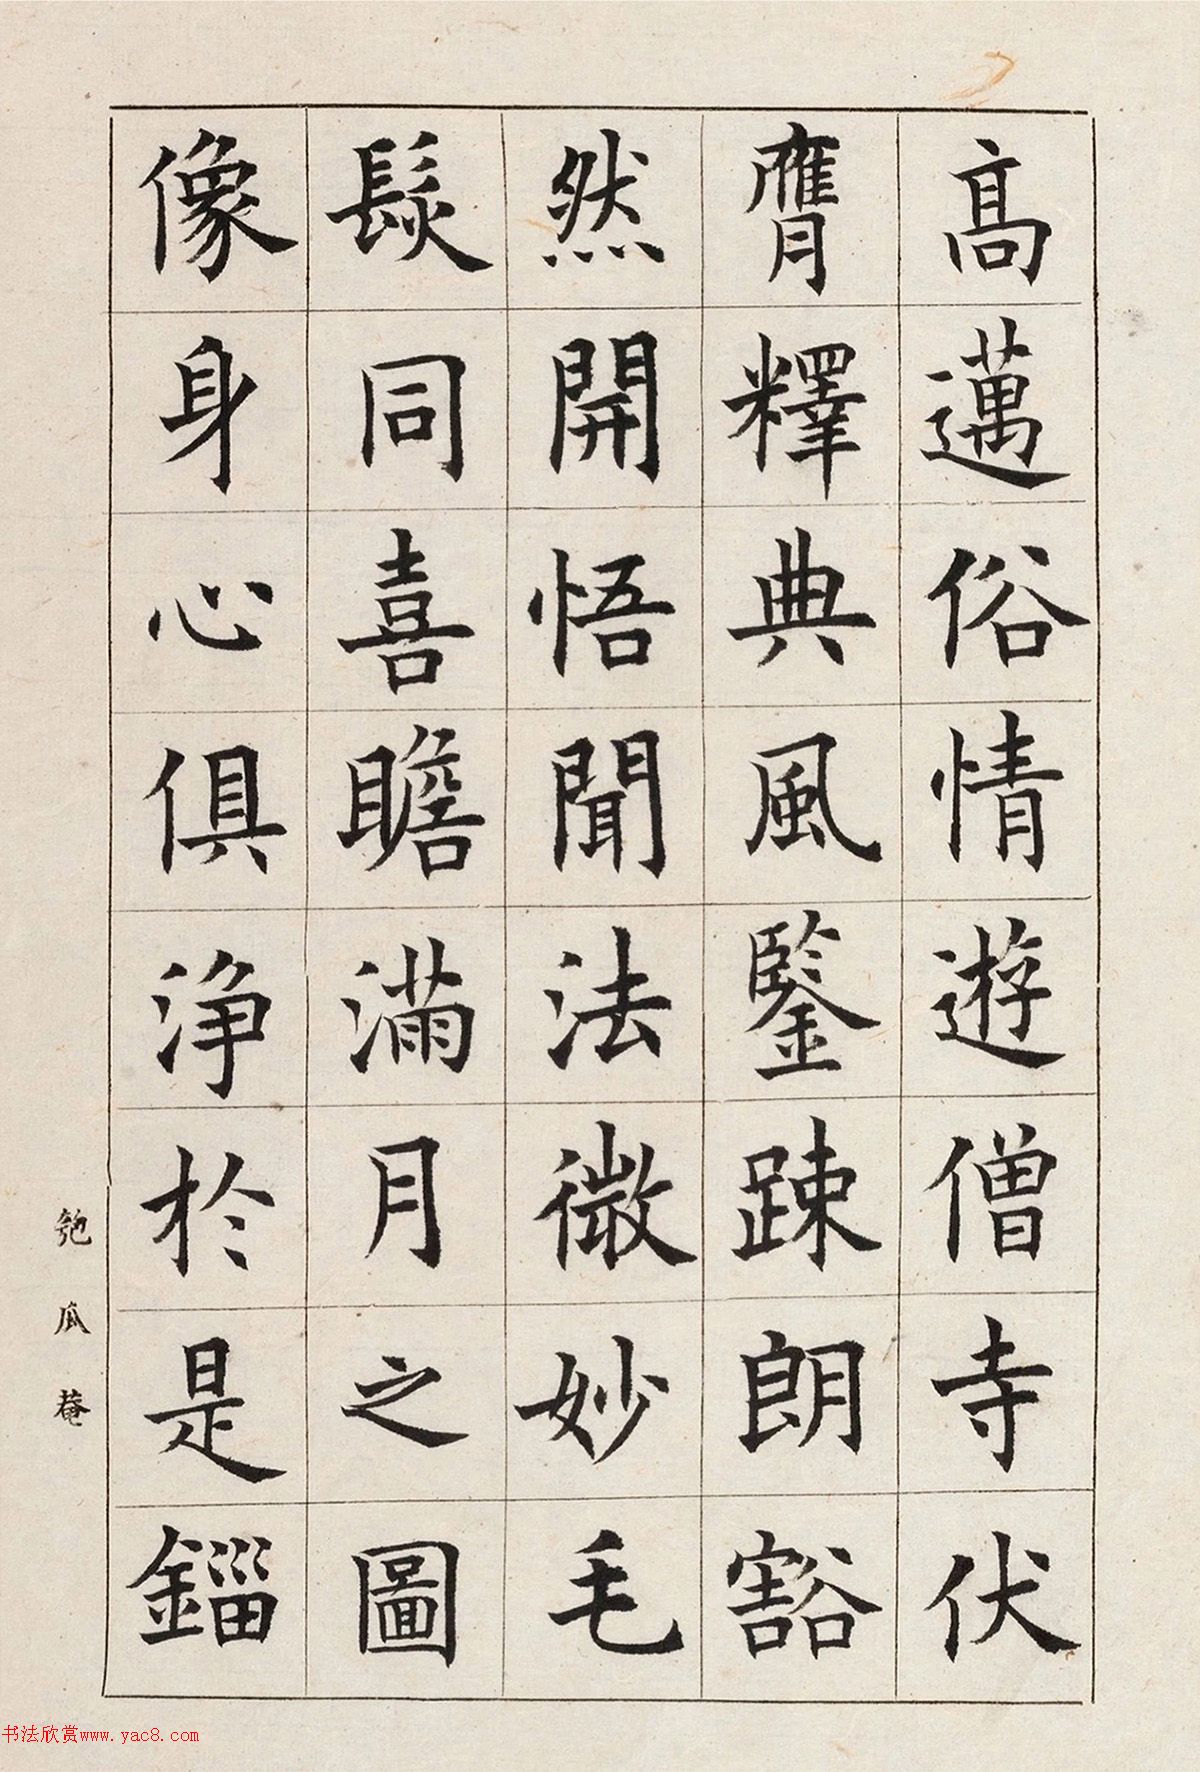 高邁俗情遊僧寺伏
膺釋典風鑒踈朗豁
然開悟聞法微妙毛
髮同喜瞻滿月之圖
像身心俱淨於是錙
匏瓜菴
书法欣赏www.yac8.com